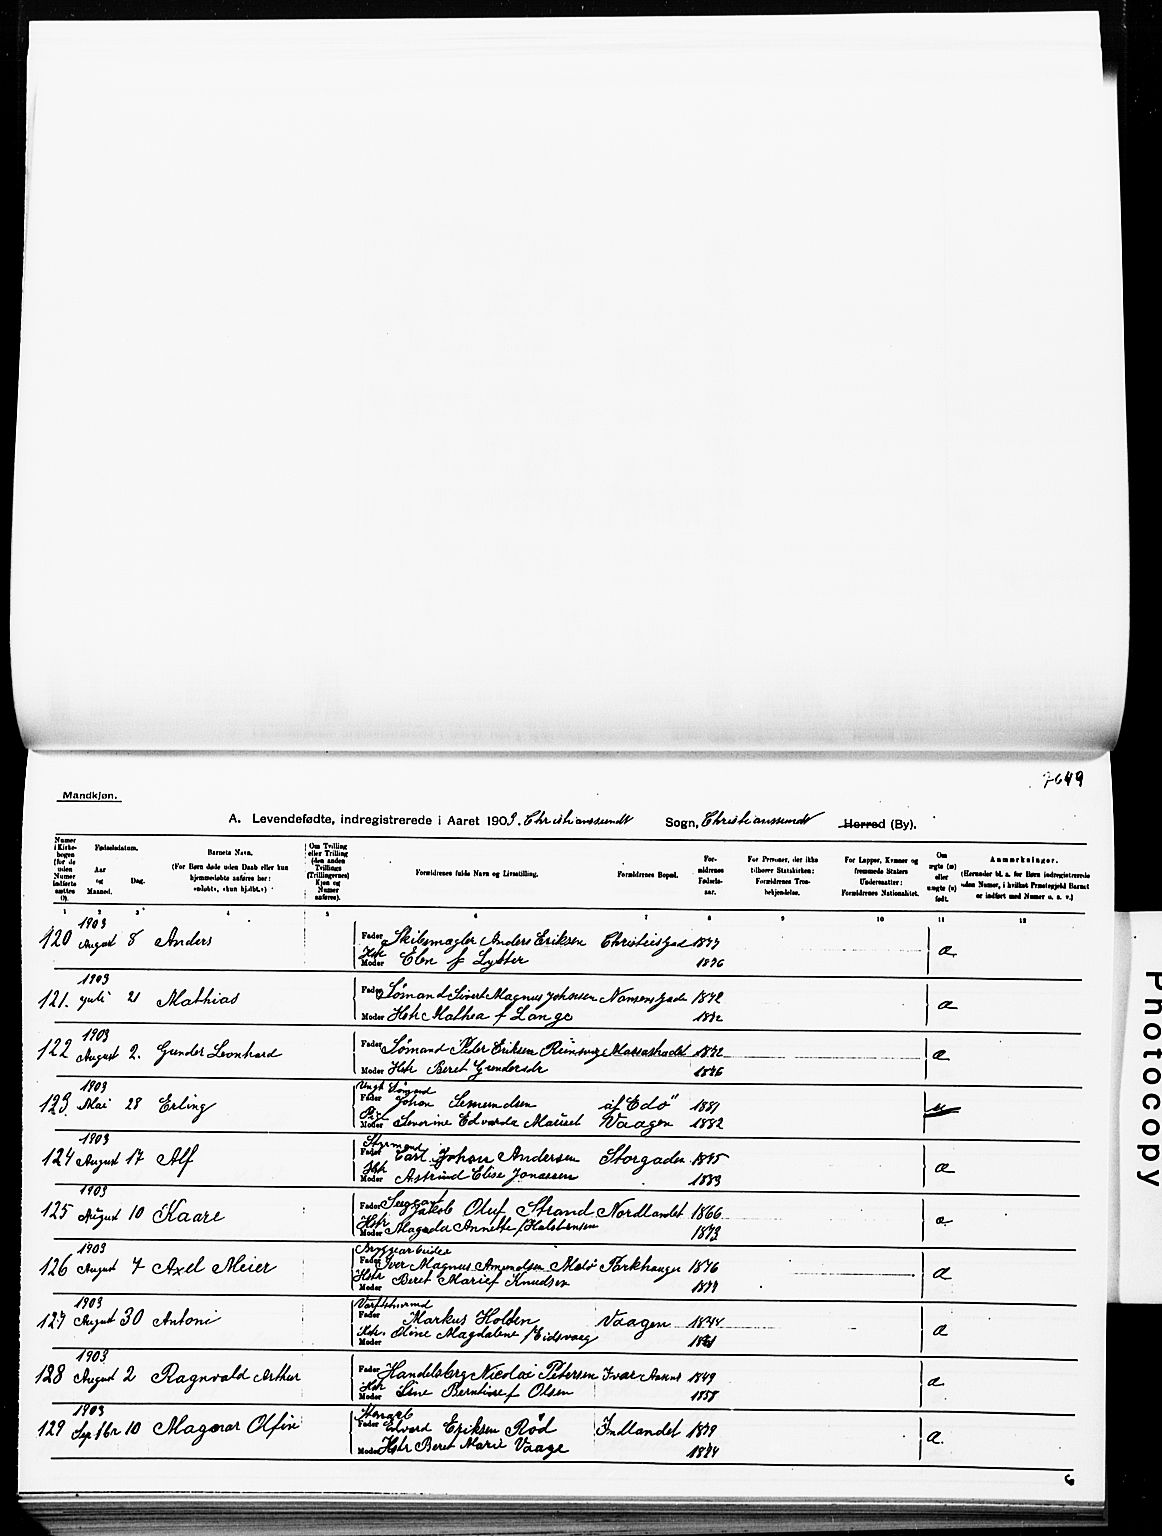 7649
Mandkjøn.
A. Levendefødte, indregistrerede i Aaret 1903. Christianssundt Sogn, Christianssundt Herred (By).
Numer i Kirkebogen (for de uden Numer indførte sættes 0).
Fødselsdatum.
Aar og Maaned.
Dag.
Barnets Navn.
(For Børn døde uden Daab eller kun hjemmedøbte anføres her: »udøbt«, »kun hjdbt.«)
Om Tvilling eller Trilling (den anden Tvillings (Trillingernes) Kjøn og Numer anføres).
Forældrenes fulde Navn og Livsstilling.
Forældrenes Bopæl.
Forældrenes Fødselsaar.
For Personer, der ikke tilhører Statskirken: Forældrenes Trosbekjendelse.
For Lapper, Kvæner og fremmede Staters Undersaatter: Forældrenes Nationalitet.
Om ægte (æ) eller uægte (u) født.
Anmerkninger.
(Herunder bl. a. for Børn indregistrerede uden Numer, i hvilket Præstegjeld Barnet er indført med Numer o. s. v.)
1 2 3 4 5 6 7 8 9 10 11 12
1903
120 August 8 Anders
Fader Skibsmægler Anders Eriksen Christiesgad 1877
Moder Hstr Elen f Lyster 1876
æ
1903
121. Juli 21 Mathias
Fader Sømand Sivert Magnus Johnsen Nansensgade 1872
Moder Hstr Mathea f Lange
æ
1903
122 August 2. Gunder Leonhard
Fader Sømand Peder Eriksen 1872
Moder Hstr Beret Gundersdr 1876
æ
1903
123. Mai 28 Erling
Ungk Sømand
Fader Johan af "Edø" 1881
Moder Severine Edvarda Vaagen 1882
1903
124 August 17 Alf
Styrmand
Fader Carl Johan Andersen Storgaden 1875
Moder Hstr Astrind Elise Jonassen 1883
æ
1903
125 August 10 Kaare
Fader Jakob Oluf Strand Nordlandet 1866
Moder Hstr Magda Annette f Halstensen 1873
æ
1903
126 August 7 Axel Meier
Bryggearbeider
Fader Iver Magnus Amundsen Melø 1876
Moder Hstr Beret Marie f Knudsen 1877
æ
1903
127 August 30 Antoni
Fader Markus Holden Vaagen 1844
Moder Hstr. Oline Magdalene f Eidsvaag
æ
1903
128 August 2 Ragnvald Arthur
Fader Handelsbrg Nicolai Petersen 1849
Moder Hstr Line Berntine f Olsen 1858
æ
1903
129 10 Magnar Olfin
Fader Edvard Eriksen Rød Indlandet 1879
Moder Hstr Beret Marie Vaage 1874
æ.
6
Photocopy